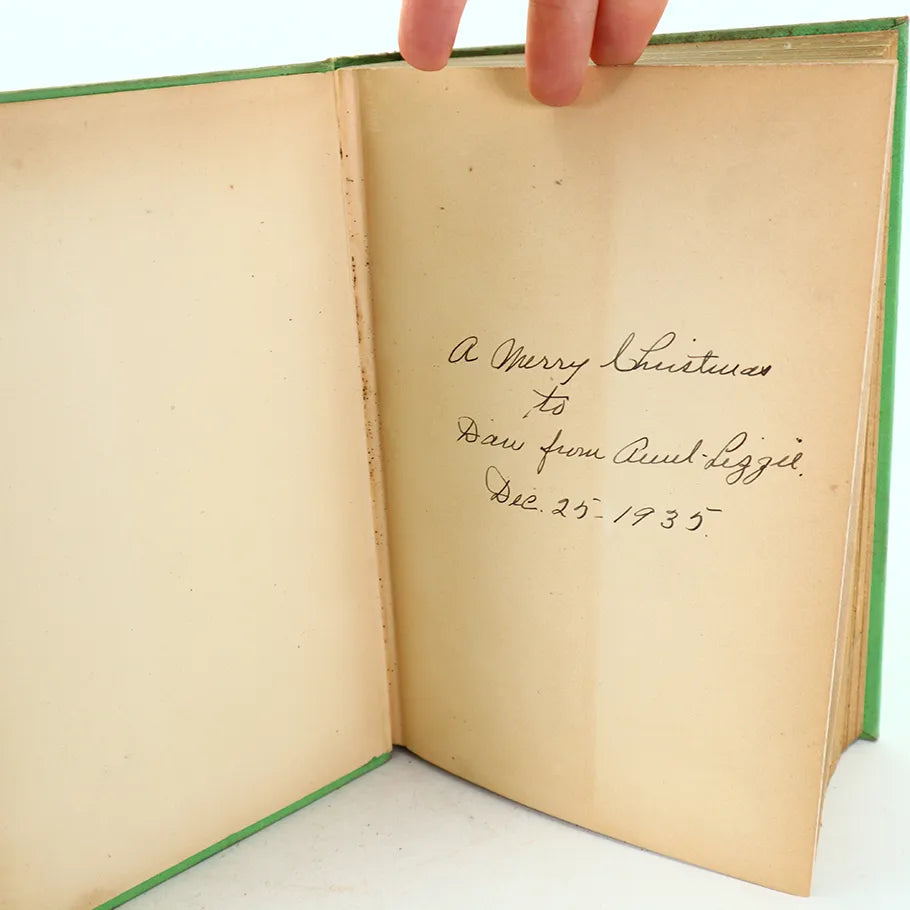 A Merry Christmas
to
Dan from Aunt Lizzie.
Dec. 25 - 1935.